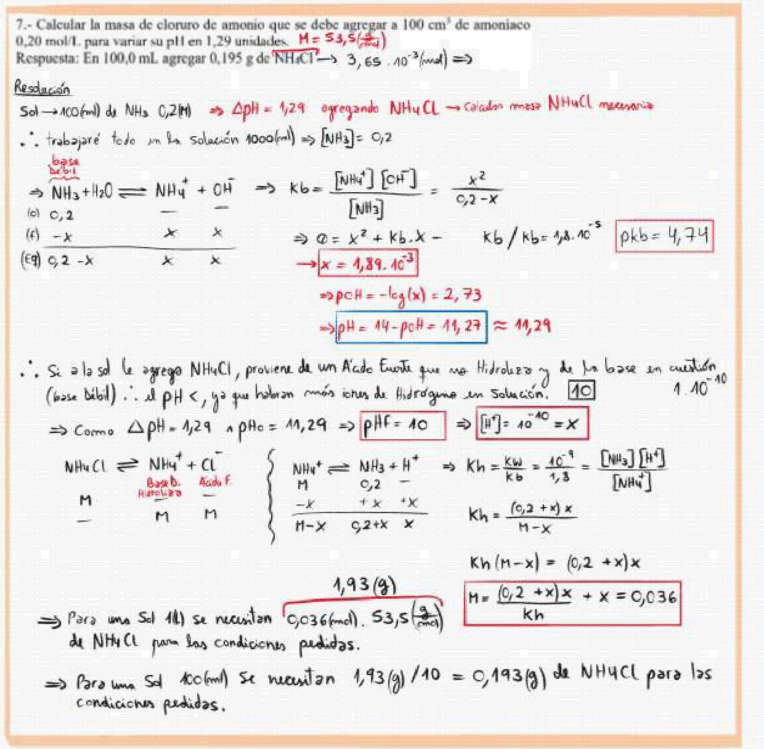 7.- Calcular la masa de cloruro de amonio que se debe agregar a 100 cm³ de amoniaco
0,20 mol/L para variar su pH en 1,29 unidades. M = 53,5 (g/mol)
Respuesta: En 100,0 mL agregar 0,195 g de NH₄Cl → 3,65 · 10⁻³ (mol) ⇒
Resolución
Sol → 100 (ml) de NH₃ 0,2 (M) ⇒ ΔpH = 1,29 agregando NH₄Cl → calcular masa NH₄Cl necesaria
∴ trabajaré todo en la solución 1000 (ml) ⇒ [NH₃] = 0,2
base
Débil
⇒ NH₃ + H₂O ⇌ NH₄⁺ + OH⁻ ⇒ Kb = [NH₄⁺] [OH⁻] / [NH₃] = x² / 0,2 - x
(c) 0,2 — —
(f) -x x x ⇒ 0 = x² + Kb·x - Kb / Kb = 1,8·10⁻⁵ pkb = 4,74
(Eq) 0,2 - x x x → x = 1,89·10⁻³
⇒ pOH = -log(x) = 2,73
⇒ pH = 14 - pOH = 11,27 ≈ 11,29
∴ Si a la sol le agrego NH₄Cl, proviene de un Ácido Fuerte que no Hidroliza y de la base en cuestión
(base débil) ∴ el pH <, ya que habran más iones de Hidrógeno en Solución. 10 1·10⁻¹⁰
⇒ Como ΔpH = 1,29 ∧ pHo = 11,29 ⇒ pHf = 10 ⇒ [H⁺] = 10⁻¹⁰ = x
NH₄Cl ⇌ NH₄⁺ + Cl⁻
Base D. Acido F.
Hidroliza
M — —
— M M
NH₄⁺ ⇌ NH₃ + H⁺ ⇒ Kh = Kw / Kb = 10⁻⁹ / 1,8 = [NH₃] [H⁺] / [NH₄⁺]
M 0,2 —
-x +x +x
M-x 0,2+x x
Kh = (0,2 + x) x / M - x
Kh (M-x) = (0,2 + x) x
M = (0,2 + x) x / Kh + x = 0,036
1,93 (g)
⇒ Para una Sol 1(L) se necesitan 0,036 (mol) · 53,5 (g/mol)
de NH₄Cl para las condiciones pedidas.
⇒ Para una Sol 100 (ml) Se necesitan 1,93 (g) / 10 = 0,193 (g) de NH₄Cl para las
condiciones pedidas.